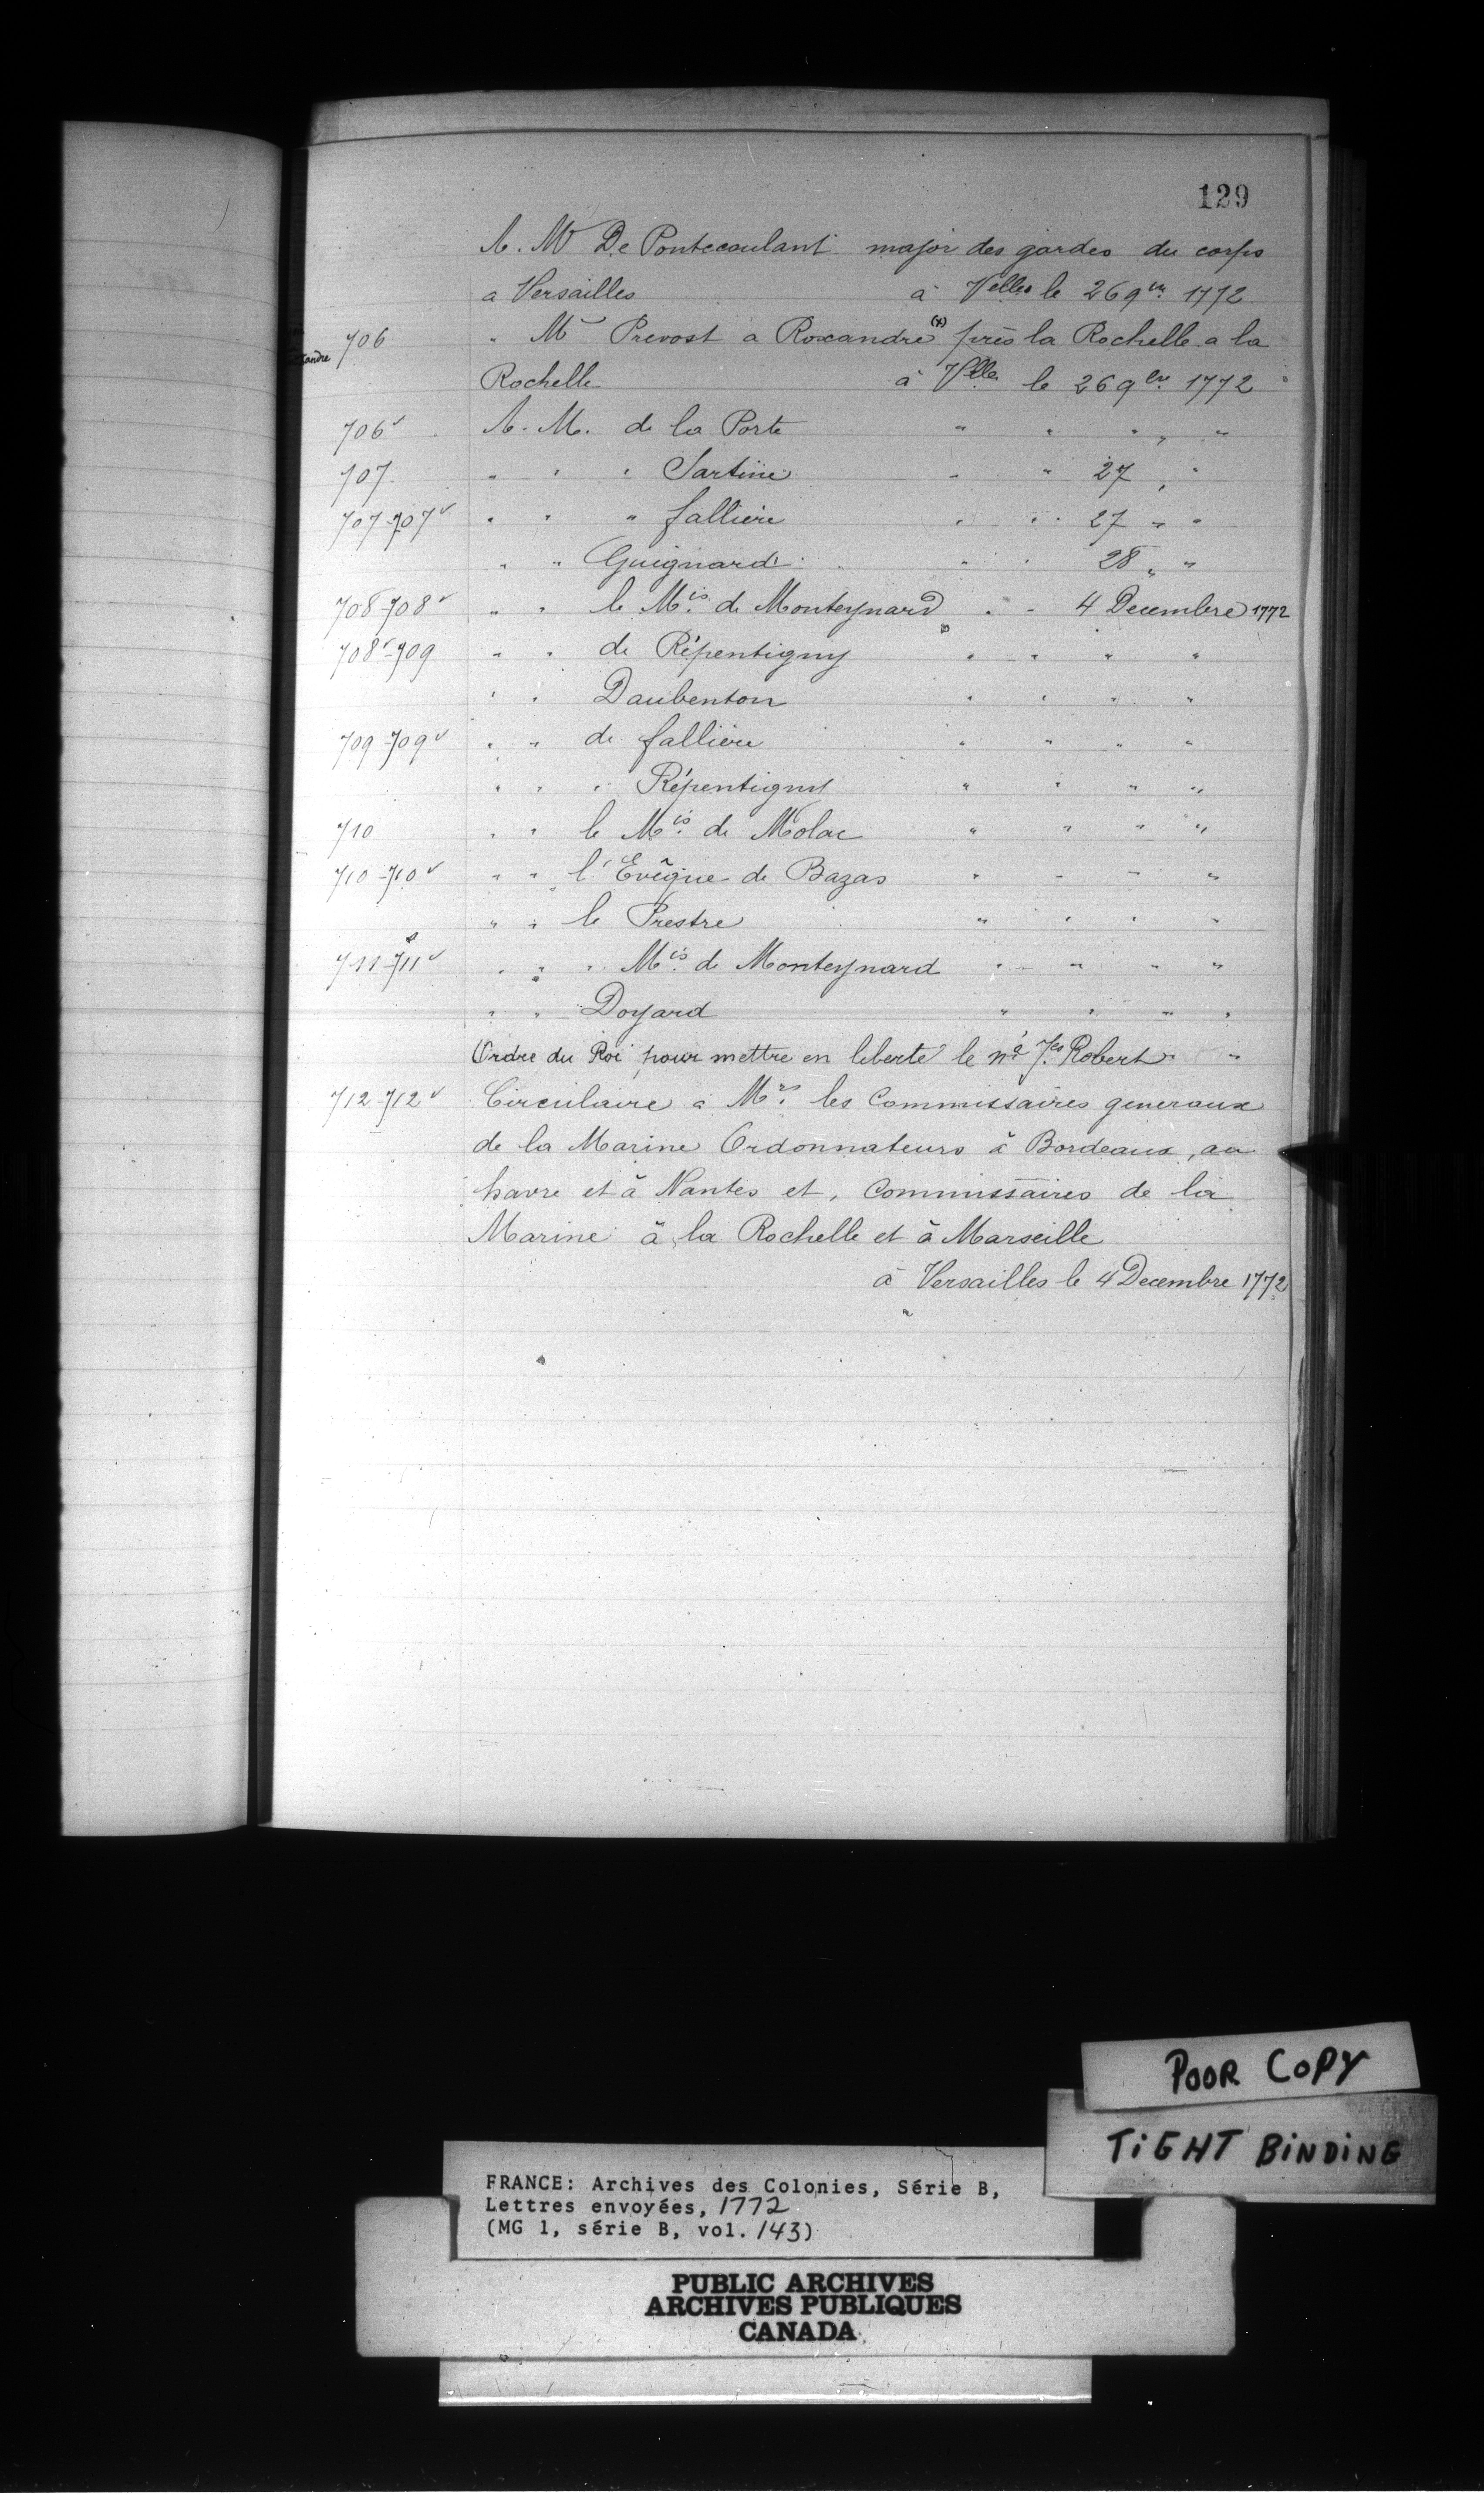 129
A. Mr De Pontecoulant major des gardes du corps
a Versailles à Velles le 26 9bre 1772
706 " Mr Prevost a Roxandre (x) près la Rochelle a la
andre
Rochelle à Vlles le 26 9bre 1772
706v A. M. de la Porte " " " " "
707 " " " Sartine " " 27 " "
707-707v " " " falliere " " 27 " "
" " Guignard " " 28 " "
708-708v " " le Mis de Monteynard " " 4 Decembre 1772
708v-709 " " de Répentigny " " " "
" " Daubenton " " " "
709-709v " " de fallière " " " "
" " " Répentigny " " " "
710 " " le Mis de Molac " " " "
710-710v " " l'Evêque de Bazas " " " "
" " le Prestre " " " "
711-711v " " " Mis de Monteynard " " " "
" " Doyard " " " "
Ordre du Roi pour mettre en liberté le né Jes Robert " "
712-712v Circulaire a Mrs les Commissaires generaux
de la Marine Ordonnateurs à Bordeaux, au
havre et à Nantes et, Commissaires de la
Marine à la Rochelle et à Marseille
à Versailles le 4 Decembre 1772
"
POOR COPY
TIGHT BINDING
FRANCE: Archives des Colonies, Série B,
Lettres envoyées, 1772
(MG 1, série B, vol. 143)
PUBLIC ARCHIVES
ARCHIVES PUBLIQUES
CANADA